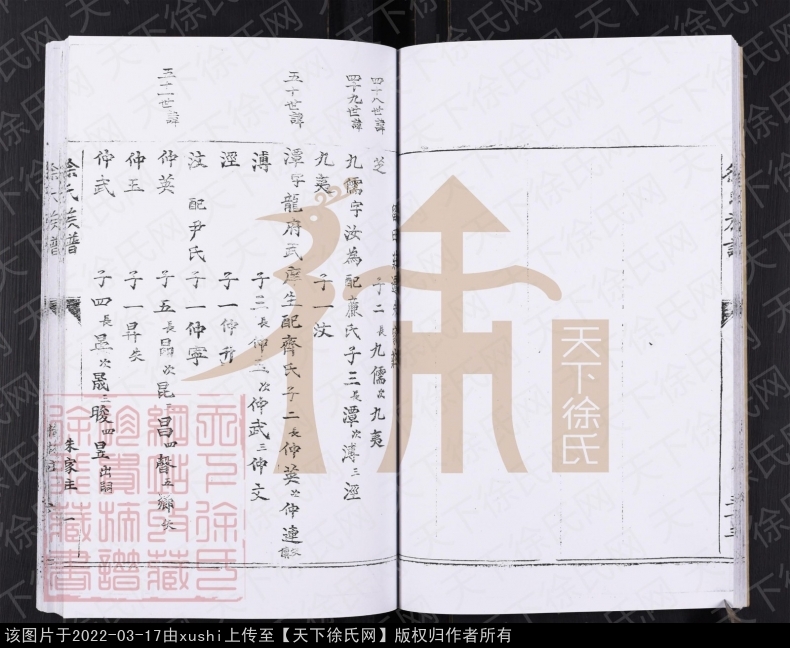 四十八世諱
芝
子二長九儒次九夷
四十九世諱
九儒字汝為配龐氏子三長潭次漙三涇
九夷
子一汶
五十世諱
潭字龍府武庠生配齊氏子二長仲英次仲連
漙
子三長仲玉次仲武三仲文
涇
子一仲升
汶 配尹氏
子一仲寧
五十一世諱
仲英
子五長晶次昆三昌四馨五鄉失
仲玉
子一昇失
仲武
子四長显次晟三晙四昱出嗣
徐氏族譜
朱家庄
一
徐氏族譜
天下徐氏
天下徐氏网
该图片于2022-03-17由xushi上传至【天下徐氏网】版权归作者所有